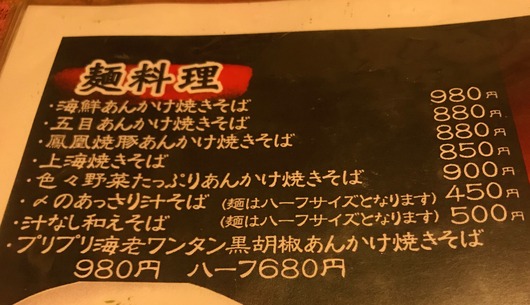 麺料理
・海鮮あんかけ焼きそば 980円
・五目あんかけ焼きそば 880円
・鳳凰焼豚あんかけ焼きそば 880円
・上海焼きそば 850円
・色々野菜たっぷりあんかけ焼きそば 900円
・〆のあっさり汁そば (麺はハーフサイズとなります) 450円
・汁なし和えそば (麺はハーフサイズとなります) 500円
・プリプリ海老ワンタン黒胡椒あんかけ焼きそば
980円 ハーフ680円